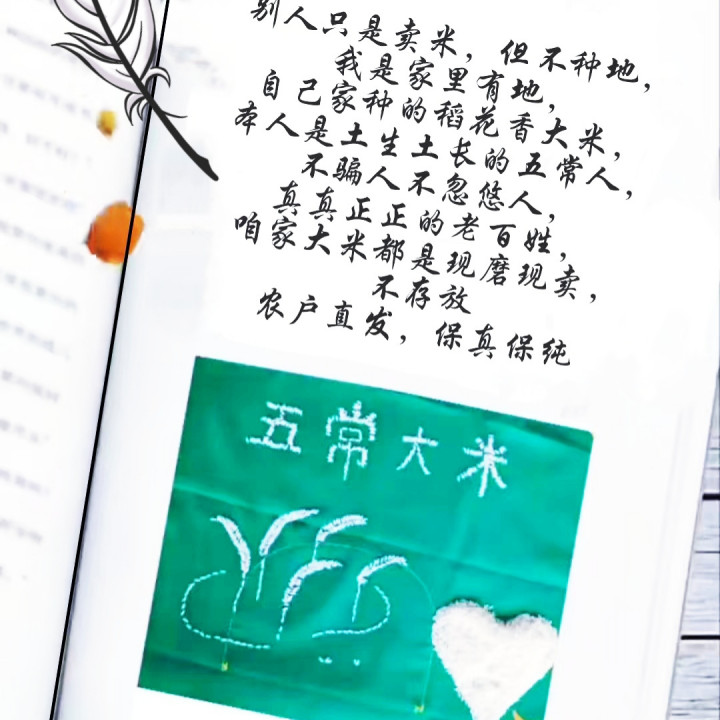 别人只是卖米，但不种地，
我是家里有地，
自己家种的稻花香大米，
本人是土生土长的五常人，
不骗人不忽悠人，
真真正正的老百姓，
咱家大米都是现磨现卖，
不存放
农户直发，保真保纯
五常大米